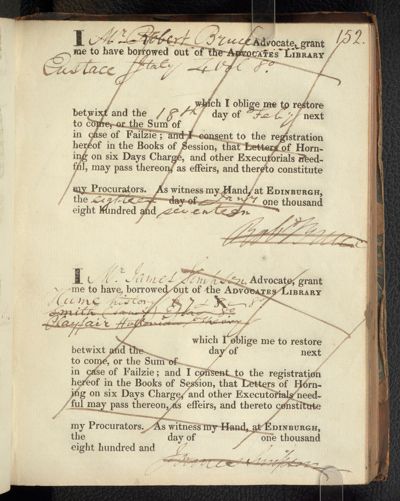 152.
I Mr Robert Bruce Advocate, grant
me to have borrowed out of the ADVOCATES LIBRARY
Eustace Italy 4 vol 8o
which I oblige me to restore
betwixt and the 18th day of Feby next
to come, or the Sum of
in case of Failzie; and I consent to the registration
hereof in the Books of Session, that Letters of Horn-
ing on six Days Charge, and other Executorials need-
ful, may pass thereon, as effeirs, and thereto constitute
my Procurators. As witness my Hand, at EDINBURGH,
the eighteen day of Jany one thousand
eight hundred and seventeen
Robt Bruce
I Mr James Simpson Advocate, grant
me to have, borrowed out of the ADVOCATES LIBRARY
Hume history
Smith
Playfair Huttonian Theory
which I oblige me to restore
betwixt and the day of next
to come, or the Sum of
in case of Failzie; and I consent to the registration
hereof in the Books of Session, that Letters of Horn-
ing on six Days Charge, and other Executorials need-
ful may pass thereon, as effeirs, and thereto constitute
my Procurators. As witness my Hand, at EDINBURGH,
the day of one thousand
eight hundred and
James Simpson